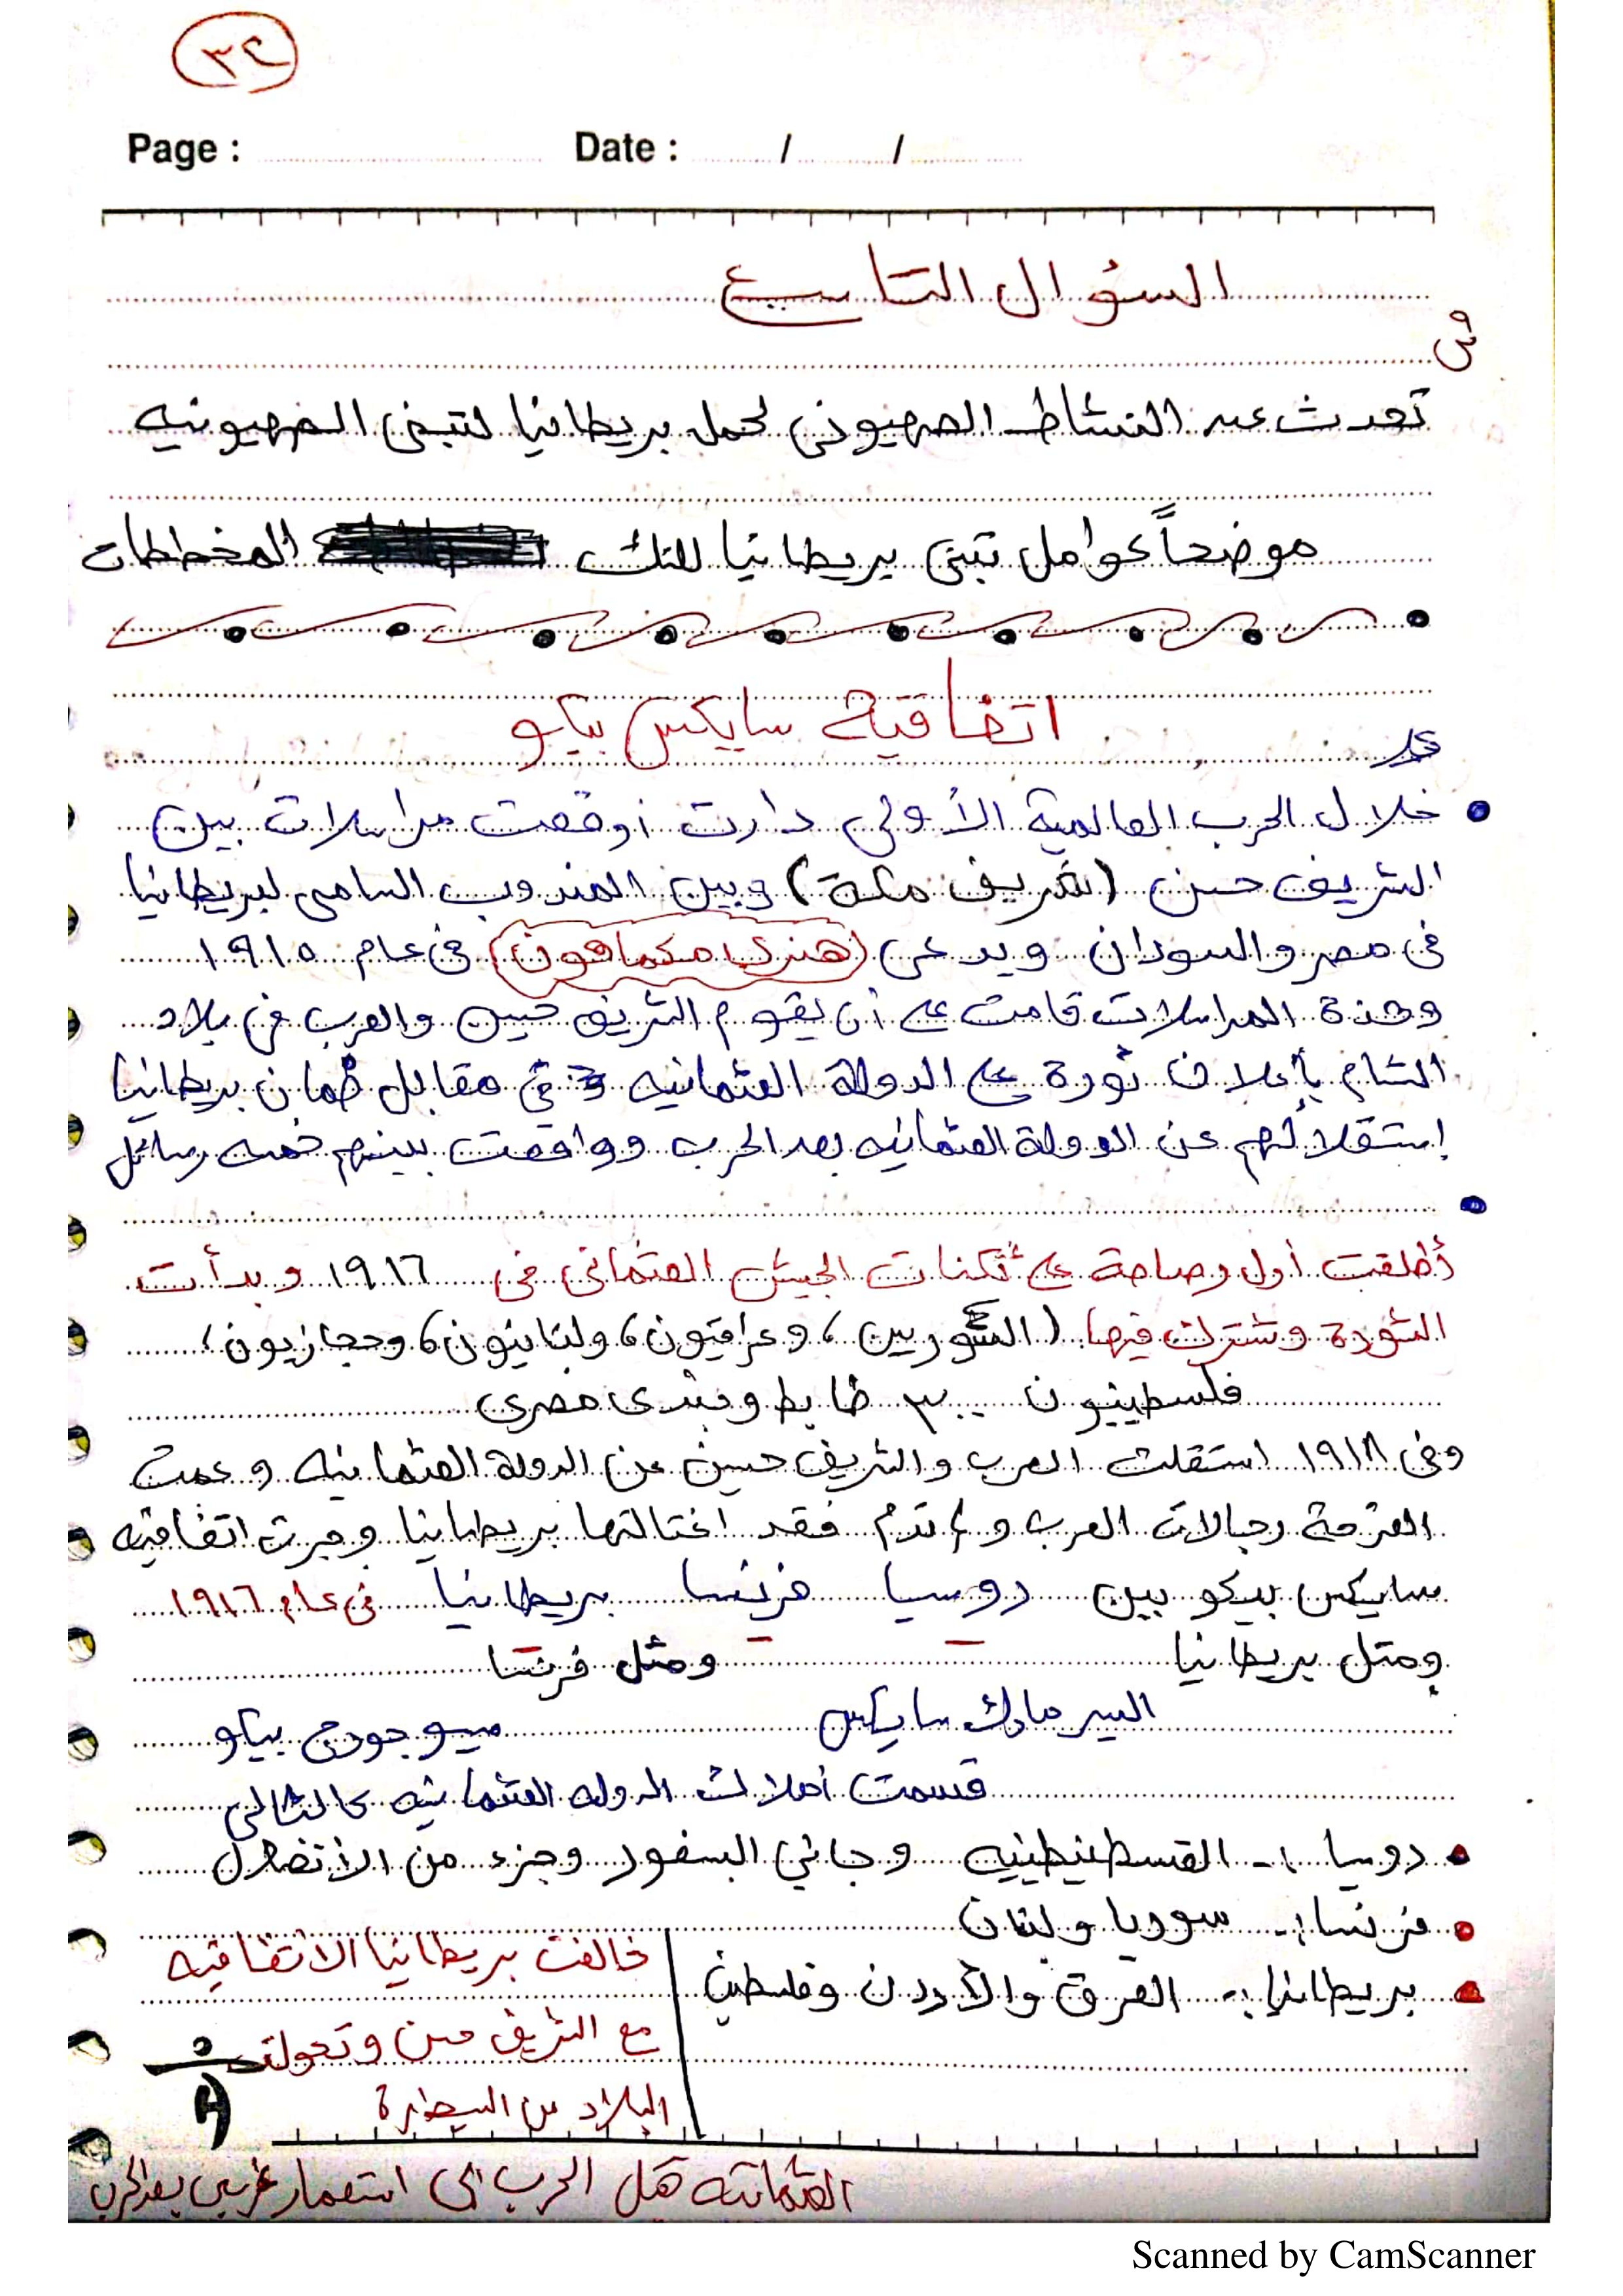 ٣٤
Page : Date : / /
السؤال التاسع
س
تحدث عن النشاط الصهيوني لحمل بريطانيا لتبنى الصهيونيه
موضحاً عوامل تبنى بريطانيا لتلك المخططات
اتفاقية سايكس بيكو
خلال الحرب العالمية الأولى دارت أو وقعت مراسلات بين
الشريف حسن (شريف مكة) وبين المندوب السامى لبريطانيا
فى مصر والسودان ويدعى (هنرى مكماهون) فى عام ١٩١٥
وهذة المراسلات قامت على أن يقوم الشريف حسين والعرب فى بلاد
الشام بأعلان ثورة على الدولة العثمانيه فى مقابل ضمان بريطانيا
إستقلالهم عن الدولة العثمانيه بعد الحرب ووافقت بينهم خمسه رسائل
أطلقت أول رصاصة على ثكنات الجيش العثمانى فى ١٩١٦ وبدأت
الثورة وشترك فيها (السوريين، وعراقيون، ولبنانيون، وحجازيون،
فلسطينيون ٣٠٠ ضابط وجندى مصرى
وفى ١٩١٨ استقلت العرب والشريف حسين عن الدولة العثمانيه وعمت
الفرحة رجالات العرب و تدم فقد اغتالتها بريطانيا وجرت اتفاقيه
سايكس بيكو بين روسيا فرنسا بريطانيا فى عام ١٩١٦
ومثل بريطانيا ومثل فرنسا
السير مارك سايكس ميسو جورج بيكو
قسمت أملاك الدوله العثمانيه كالتالى
روسيا :- القسطنطينيه وجانبي البسفور وجزء من الأنضول
فرنسا :- سوريا ولبنان
بريطانيا :- العرق والأردن وفلسطين
خالفت بريطانيا الاتفاقيه
مع الشريف حسن وتحولت
البلاد من السيطرة
العثمانيه قبل الحرب الى استعمار غربى بعد الحرب
Scanned by CamScanner